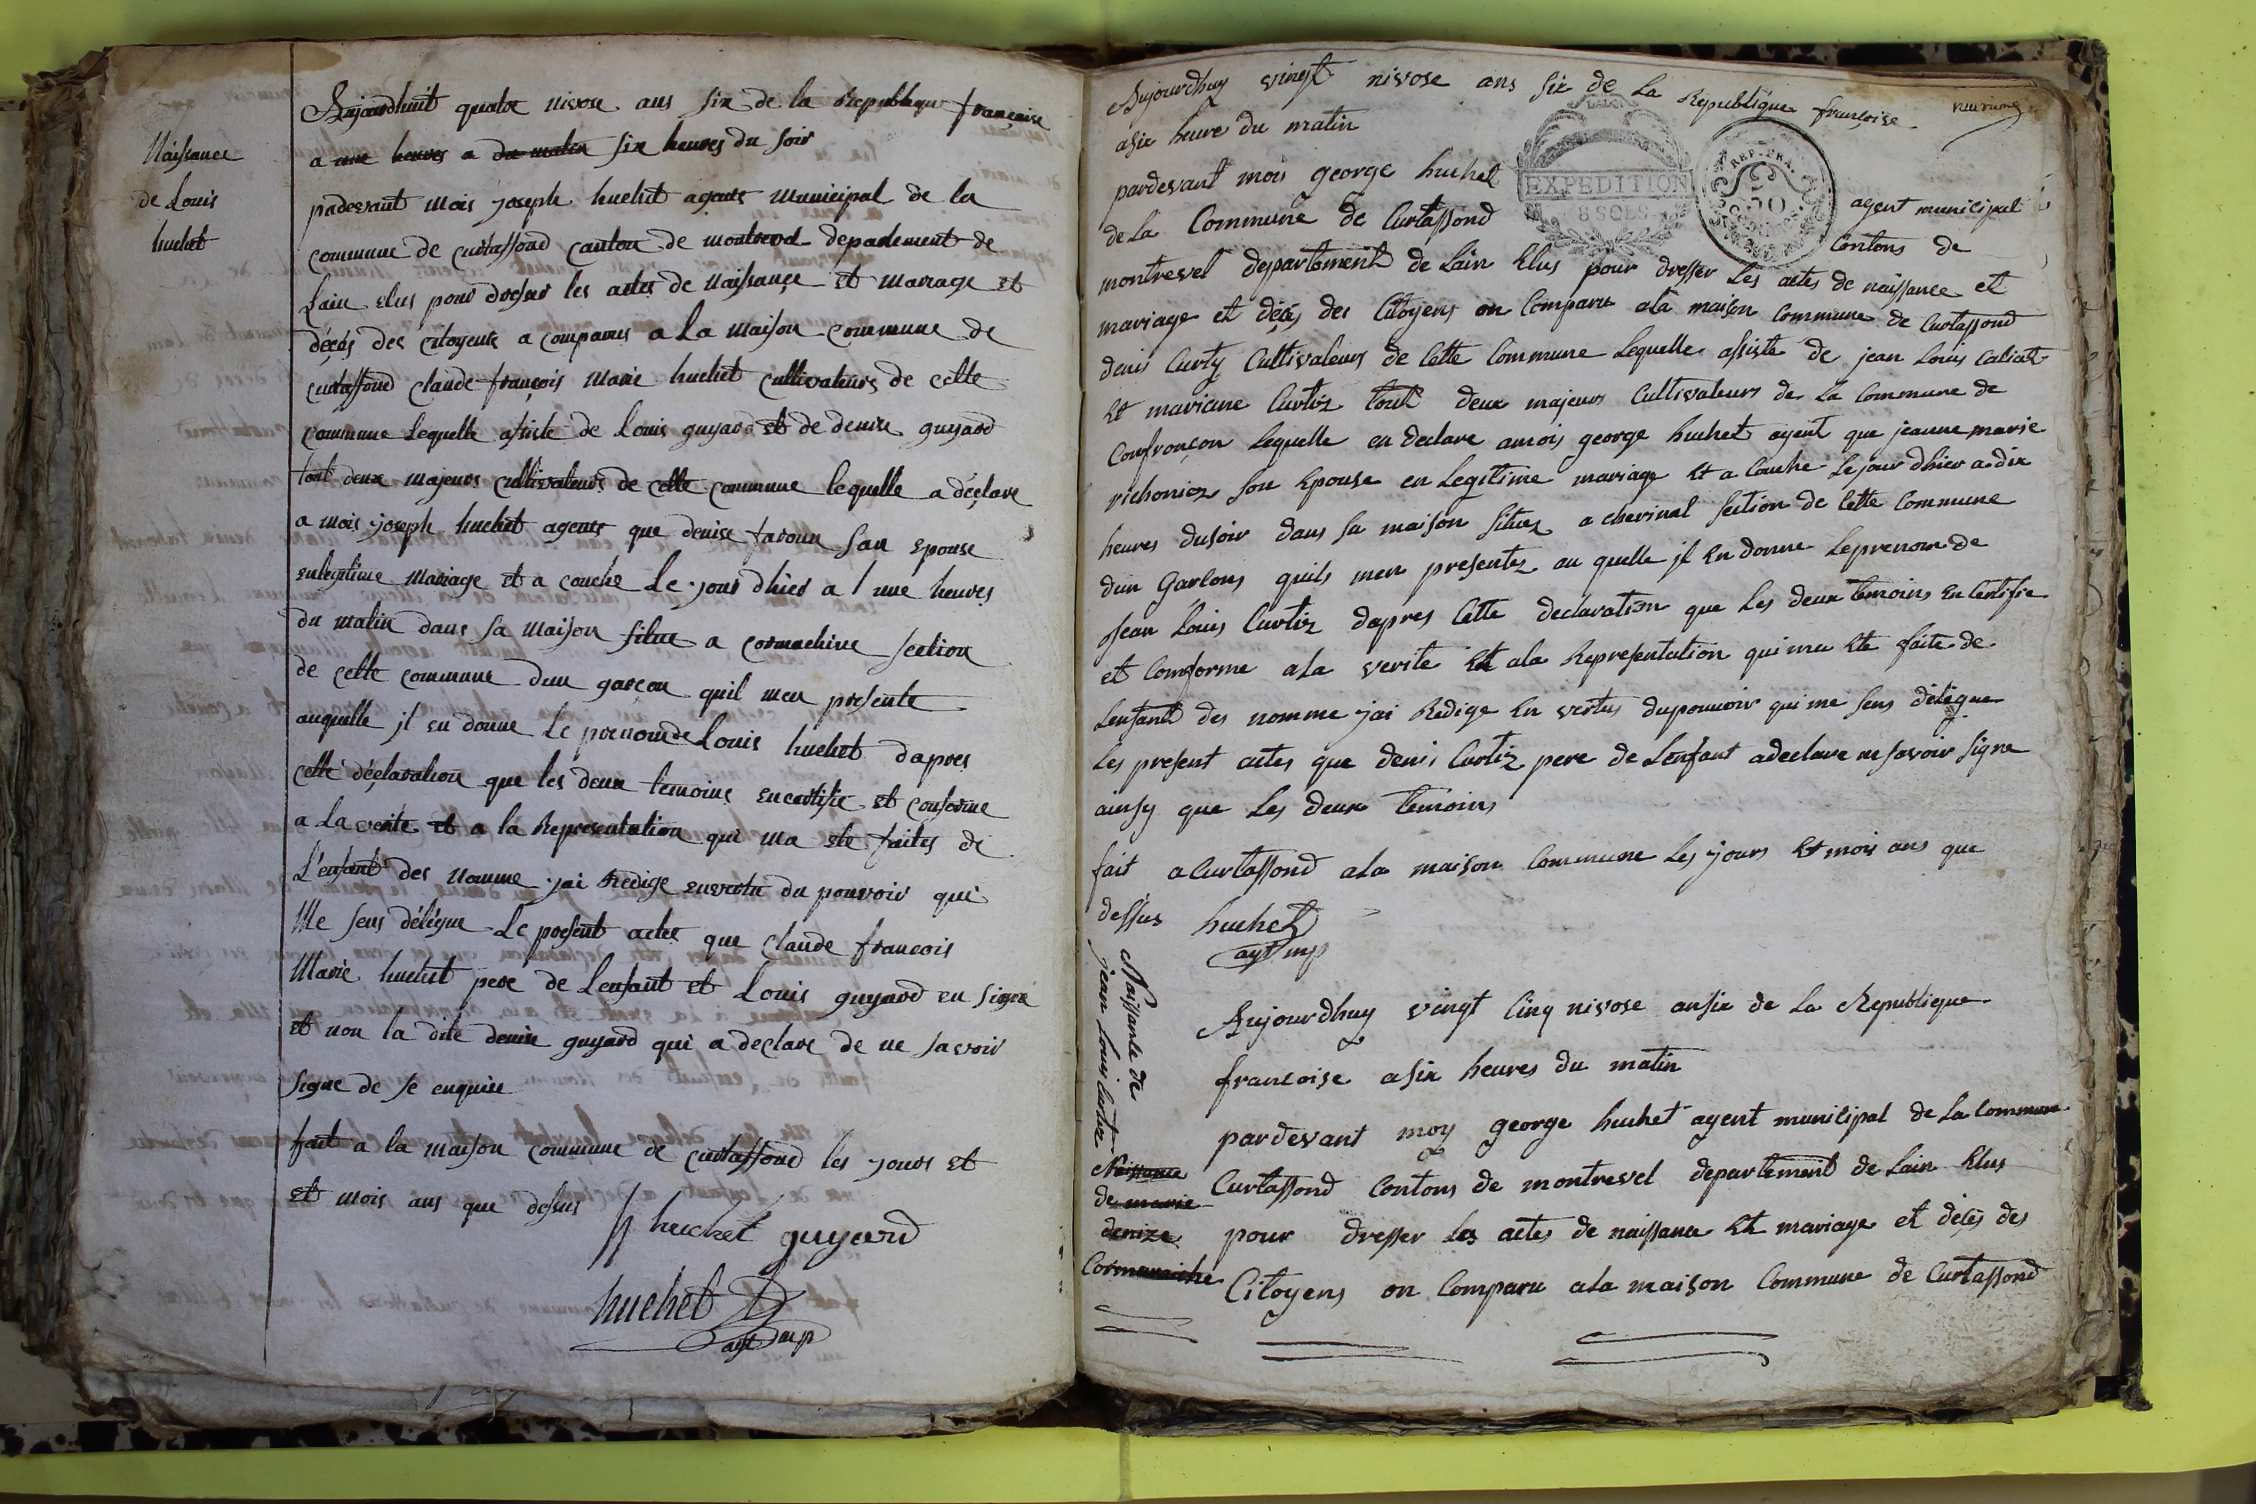 Naissance
de Louis
huchet
Aujourdhuit quatre nivose ans six de la Republique françaice
a une heures a du matin six heures du soir
padevant mois joseph huchet agents municipal de la
commune de curtaffond canton de montrevel departement de
Lain elus pour dresser les actes de naissance et mariage et
décés des citoyents a comparus a La maison commune de
curtaffond claude françois marie huchet cultivateurs de cette
commune Lequelle assiste de Louis guyard et de denise guyard
tout deux majeurs cultivateurs de cette commune lequelle a déclare
a mois joseph huchet agents que denise favoun san epouse
enlegitime mariage et a couche Le jour dhier a 1 une heures
du matin dans sa maison situe a cormachine section
de cette commune dun garçon quil men presente
auquelle il en donne Le prenom de Louis huchet dapres
cette déclaration que les deux temoins encertifie et conforme
a La verite et a la Representation qui ma ete faites de
L'enfant des nomme jai Redige envertu du pouvoir qui
Me sens délégue Le present actes que claude francois
Marie huchet pere de Lenfant et Louis guyard en signé
et non la dite denise guyard qui a declare de ne savoir
signe de se enquise
fait a la maison commune de curtaffond les jours et
et mois ans que desus
huchet guyard
huchet
agt mp
Aujourdhuy vingt nivose ans six de La Republique françoise
neuvieme
asix heure du matin
EXPEDITION
8 SOLS
REP. FRA.
50
pardevant mois george huchet agent municipal
de La Commune de Curtaffond Contons de
montrevel departement de Lain Elus pour dresser Les actes de naissance et
mariage et décés des Citoyens on Comparu ala maison Commune de Curtaffond
denis Curty Cultivateurs de Cette Commune Lequelle assiste de jean Louis Caliat
Et mariane Curtiz tout deux majeurs Cultivateurs de La Commune de
Confronçon Lequelle en declare amois george huchet agent que jeanne marie
pichoniez son Epouse en Legitime mariage Et a Couche Le jour dhier a dix
heures dusoir dans sa maison situez a chevinal section de Cette Commune
dun Garlons quils men presentez au quelle jl En donne Leprenom de
Jean Louis Curtiz dapres Cette declaration que Les deux temoins En Certifie
et Comforme ala verite Et ala Representation qui ma Ete faite de
Lenfant des nomme jai Redige En vertus dupouvoir qui me sens délégue
Les present actes que denis Curtiz pere de Lenfant adeclare ne savoir signe
ainsy que Les deux temoins
fait a Curtaffond ala maison Commune Les jours Et mois ans que
dessus huchet
agt mp
Naissante de
jean Louis Curtiz
Aujourdhuy vingt Cinq nivose ansix de La Republique
francoise asix heures du matin
pardevant moy george huchet agent municipal de La Commune
Curtaffond Contons de montrevel departement de Lain Elus
pour dresser Les actes de naissance Et mariage et décés des
Citoyens on Comparu ala maison Commune de Curtaffond
Naissance
de marie
denize
Cormaraiche